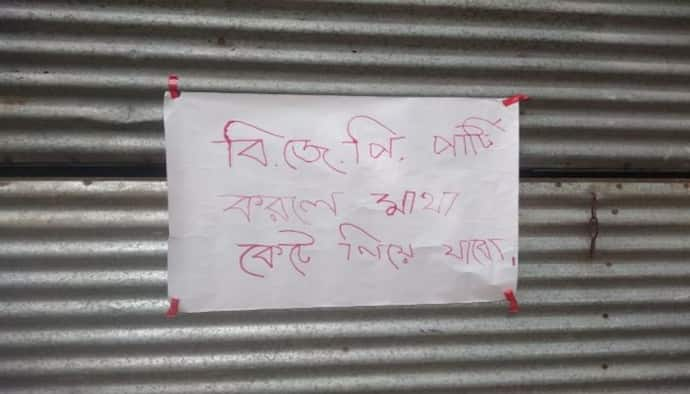 বি.জে.পি. পার্টি
করলে মাথা
কেটে নিয়ে যাবো.